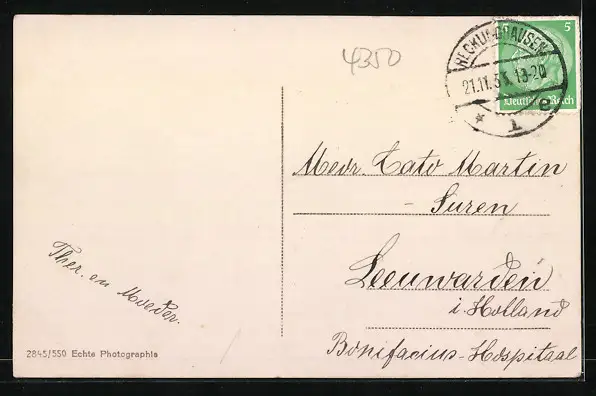 4350
5
RECKLINGHAUSEN
21.11.34.19-20
Deutsches Reich
* 1 e
Mevr. Cato Martin
- Suren
Leeuwarden
i. Holland
Bonifacius-Hospitaal
Ther. en Moeder.
2845/550 Echte Photographie